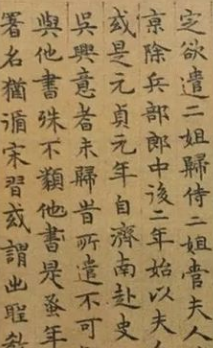 定欲遣二姐歸侍二姐管夫人
京除兵部郎中後二年始以夫人
或是元貞元年自濟南赴史
吳興意者未歸昔所遣不可
與他書殊不類他書是蚤年
署名猶循宋習或謂出聖教